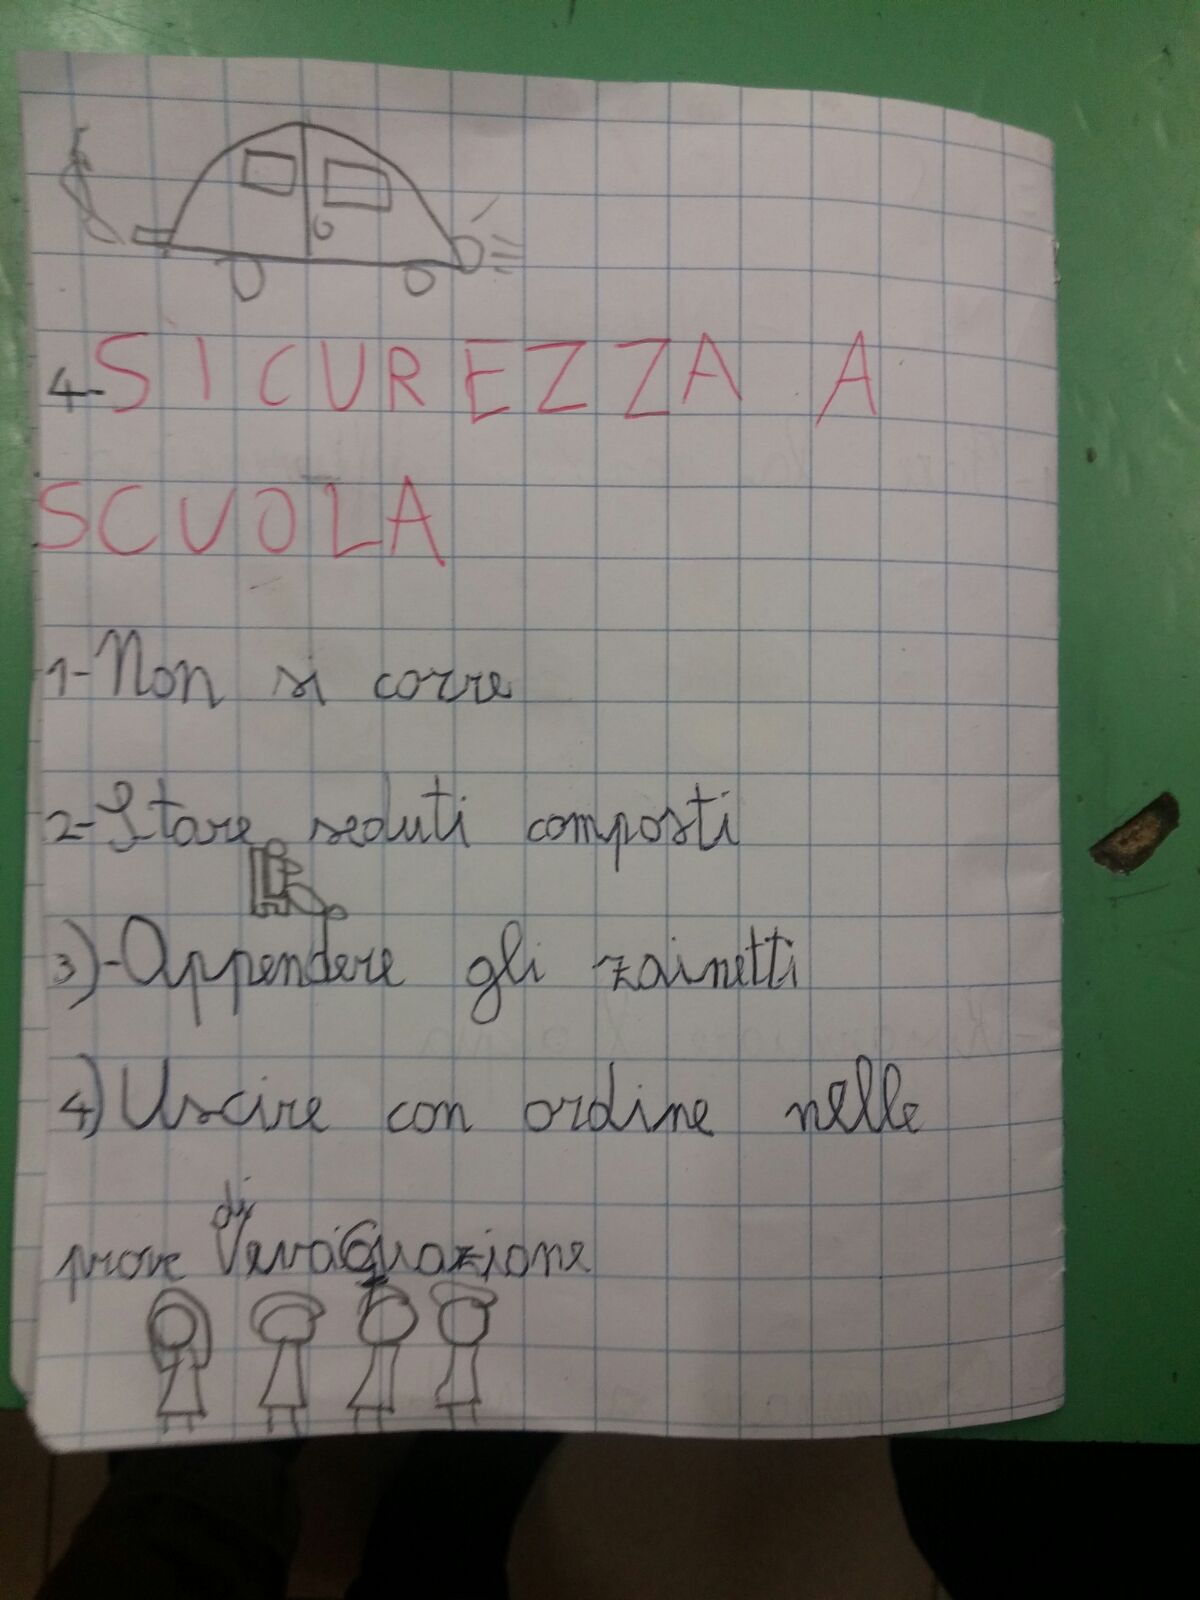 4-SICUREZZA A
SCUOLA
1-Non si corre
2-Stare seduti composti
3)-Appendere gli zainetti
4) Uscire con ordine nelle
prove di evaquazione